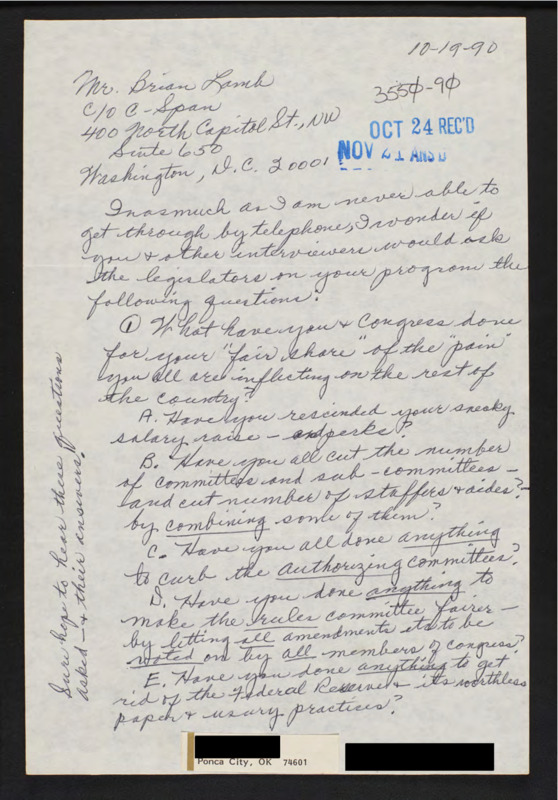 10-19-90
Mr. Brian Lamb
c/o C-Span
400 North Capitol St., NW
Suite 650
Washington, D.C. 20001
3550-90
OCT 24 REC'D
NOV 21 ANS'D
Inasmuch as I am never able to
get through by telephone, I wonder if
you & other interviewers would ask
the legislators on your program the
following questions:
① What have you & Congress done
for your "fair share" of the "pain"
you all are inflicting on the rest of
the country?
A. Have you rescinded your sneaky
salary raise - and perks?
B. Have you all cut the number
of committees and sub-committees -
and cut number of staffers & aides? -
by combining some of them?
C. Have you all done anything
to curb the authorizing committees?
D. Have you done anything to
make the rules committee fairer -
by letting all amendments etc to be
voted on by all members of congress?
E. Have you done anything to get
rid of the Federal Reserve & its worthless
paper & usury practices?
Sure hope to hear these questions
asked - & their answers.
Ponca City, OK 74601